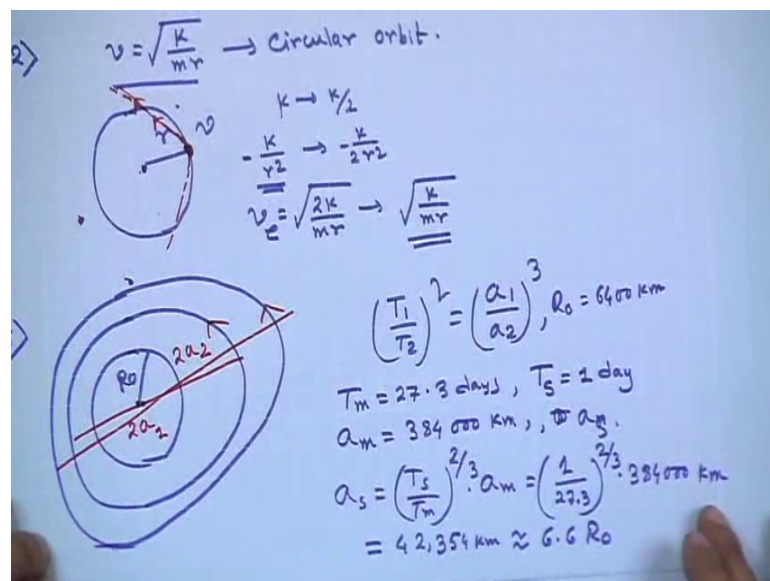 2) v = √(k/mr) → Circular orbit.
r v
k → k/2
-k/r² → -k/2r²
v_e = √(2k/mr) → √(k/mr)
(T₁/T₂)² = (a₁/a₂)³, R₀ = 6400 km
2a₂
R₀
2a₂
T_m = 27.3 days, T_s = 1 day
a_m = 384 000 km, , a_s.
a_s = (T_s/T_m)^2/3 . a_m = (1/27.3)^2/3 . 384000 km
= 42,354 km ≈ 6.6 R₀